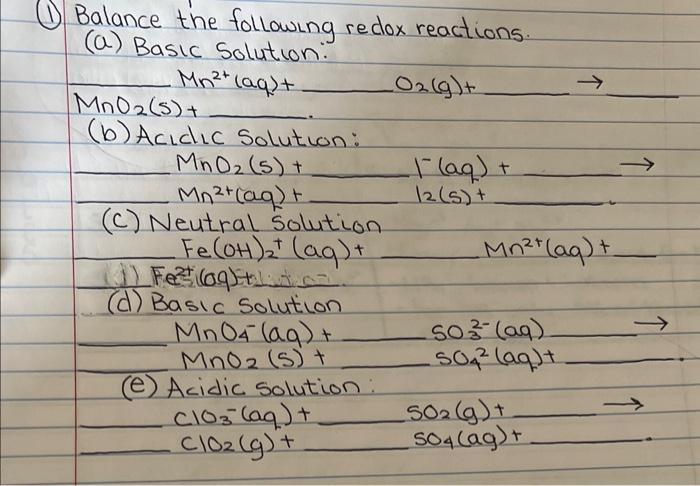 ① Balance the following redox reactions.
(a) Basic Solution:
____ Mn²⁺(aq)+ ____ O₂(g)+ ____ → ____
MnO₂(s)+ ____.
(b) Acidic Solution:
____ MnO₂(s) + ____ I⁻(aq) + ____ →
____ Mn²⁺(aq)+ ____ I₂(s)+ ____.
(c) Neutral Solution
____ Fe(OH)₂⁺(aq)+ ____ Mn²⁺(aq)+ ____
Fe²⁺(aq)+
(d) Basic Solution
____ MnO₄⁻(aq) + ____ SO₃²⁻(aq) ____ →
____ MnO₂(s) + ____ SO₄²(aq)+ ____.
(e) Acidic Solution:
____ ClO₃⁻(aq)+ ____ SO₂(g)+ ____ →
____ ClO₂(g)+ ____ SO₄(aq)+ ____.